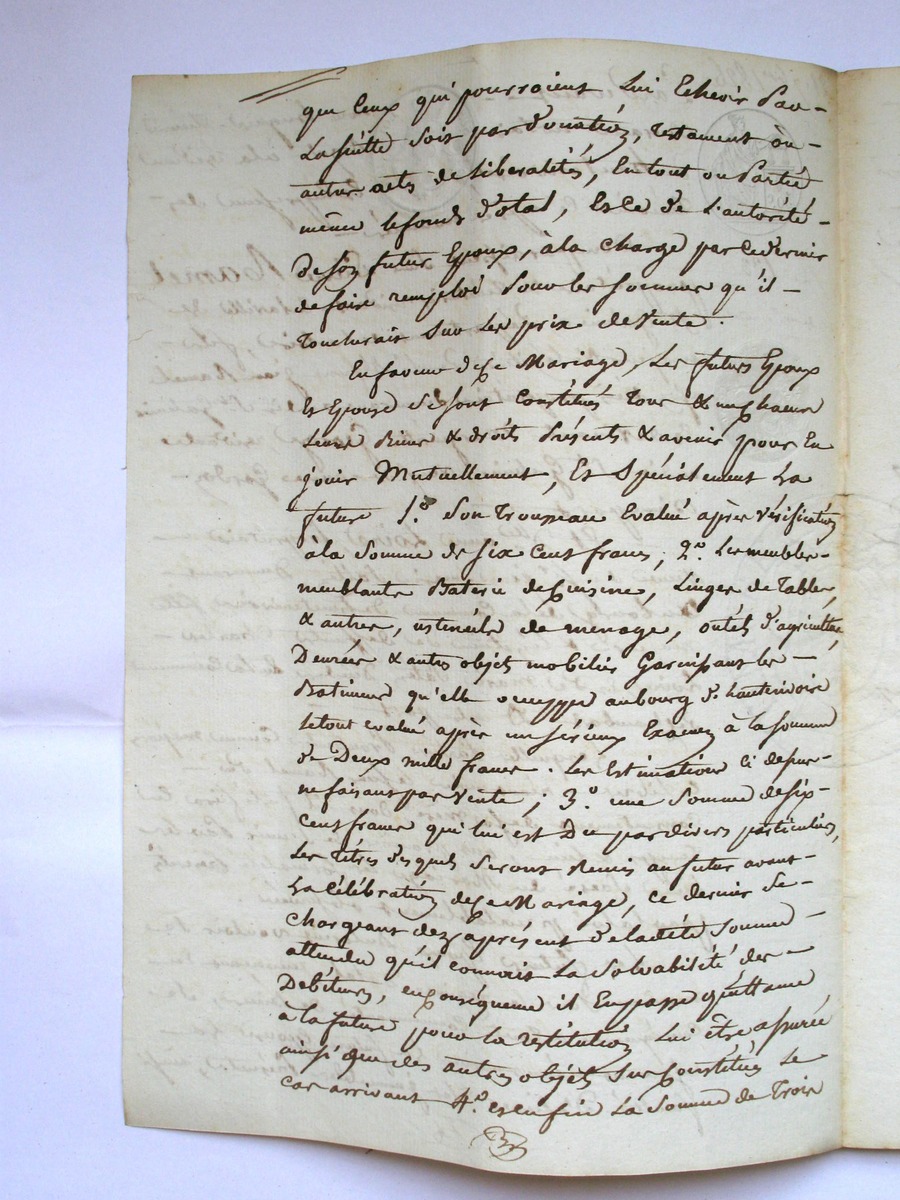 que ceux qui pourroient lui Echeoir Par
La suitte soit par donation, testament ou
autres actes de Liberalités, En tout ou Partie
même le fonds dotal, Et ce de L'autorité
de son futur Epoux, à la charge par ce dernier
de faire remploi Pour les sommes qu'il
toucherait sur les prix de Vente.
En faveur de ce Mariage, Les futurs Epoux
et Epouse se sont Constitués tous & un chacun
leurs Biens & droits Présents & avenir pour En
jouir Mutuellement, Et Spécialement La
future 1.º Son Trousseau Evalué après Vérification
à la Somme de six cent francs; 2.º Les meubles
meublants Baterie de Cuisine, Linges de Table,
& autres, ustencils de menage, outils d'agriculture,
Denrées & autres objets mobiliers Garnissant les
Batiments qu'elle occuppe au bourg d'hauterivoire
le tout evalué après un sérieux Examen à la somme
de Deux mille francs. Les Estimations ci dessus
ne faisant pas Vente; 3.º une Somme de six
cent francs qui lui est Due par divers particuliers,
Les titres desquels seront Remis au futur avant
La célébration de ce Mariage, ce dernier se
chargeant dez à présent de la dite Somme
attendu qu'il connait La Solvabilité des
Débiteurs, en conséquence il En passe quittance
à la future pour la restitution Lui être assurée
ainsi que des autres objets sus Constitués Le
cas arrivant 4.º et enfin La Somme de Trois